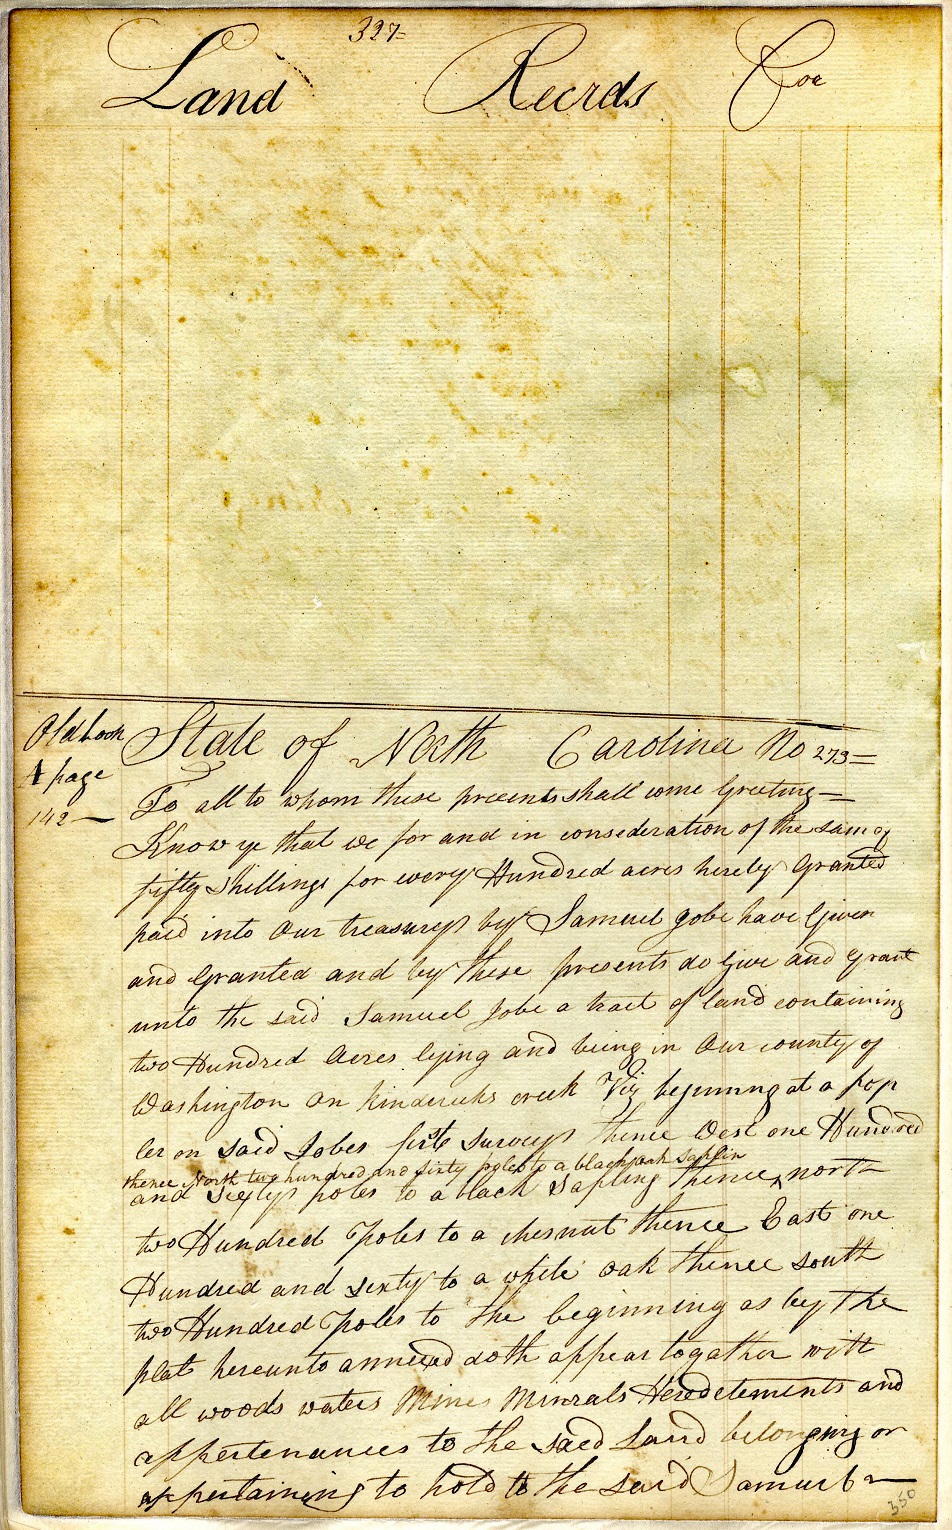 327=
Land Recrds &oe
Old book
A page
142 —
State of North Carolina No 273=
To all to whom these precents shall come Greeting=
Know ye that we for and in consederation of the sum of
fifty shillings for every Hundred acres hereby Granted
paid into Our treasury by Samuel Jobe have Given
and Granted and by these presents do Give and Grant
unto the said Samuel Jobe a tract of land containing
two Hundred Acres lying and being in Our county of
Washington on kindericks creek Viz beginning at a pop
ler on said Jobes firts survey thence West one Hundred
thence North two hundred and sixty poles to a black oak saplin
and sixty poles to a black sapling thence ^ north
two Hundred Poles to a chesnut thence East one
Hundred and sixty to a white oak thence south
two Hundred Poles to the beginning as by the
plat hereunto annexed doth appear togather with
all woods waters Mines Minrals Heredetements and
appertenances to the saed Land belonging or
appertaining to hold to the said Samuel —
350